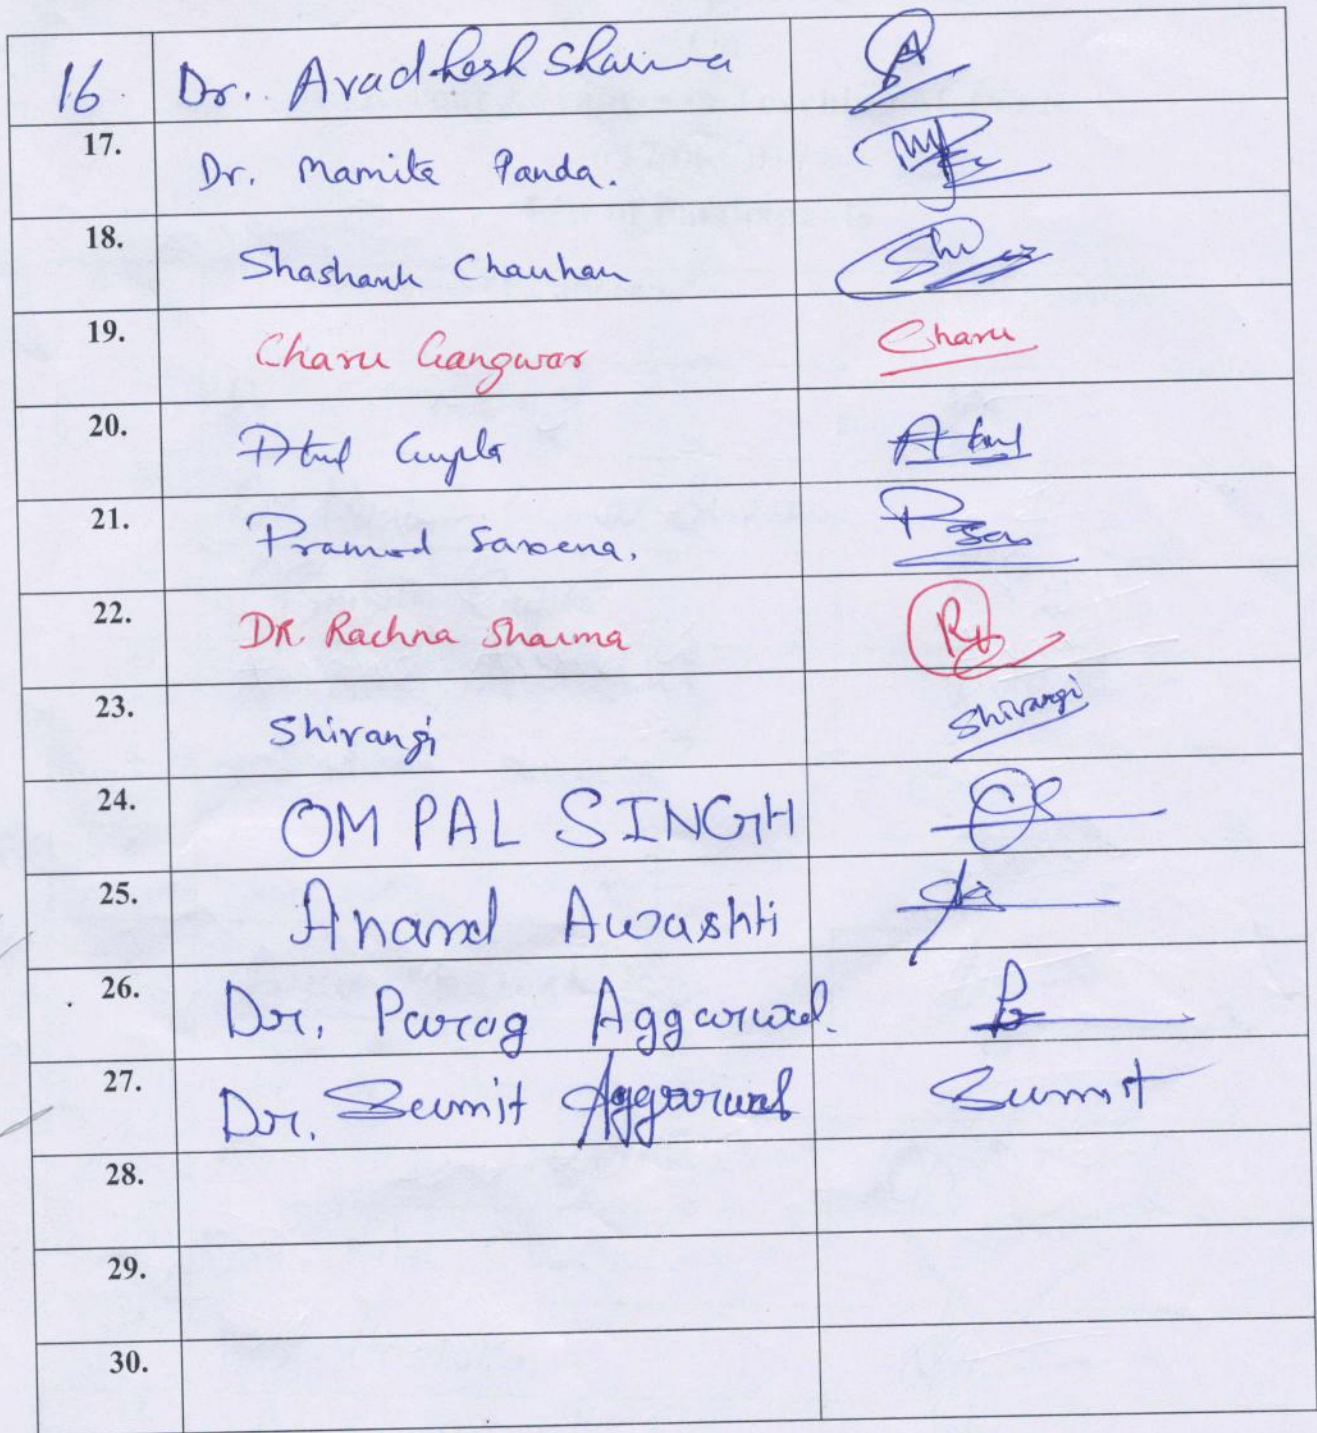 16. Dr. Avadhesh Sharma
17. Dr. Mamita Panda.
18. Shashank Chauhan Sh
19. Charu Gangwar Charu
20. Atul Gupta Atul
21. Pramod Saxena.
22. DR. Rachna Sharma
23. Shivangi Shivangi
24. OM PAL SINGH
25. Anand Awashti
26. Dr. Parag Aggarwal.
27. Dr. Sumit Aggarwal Sumit
28.
29.
30.